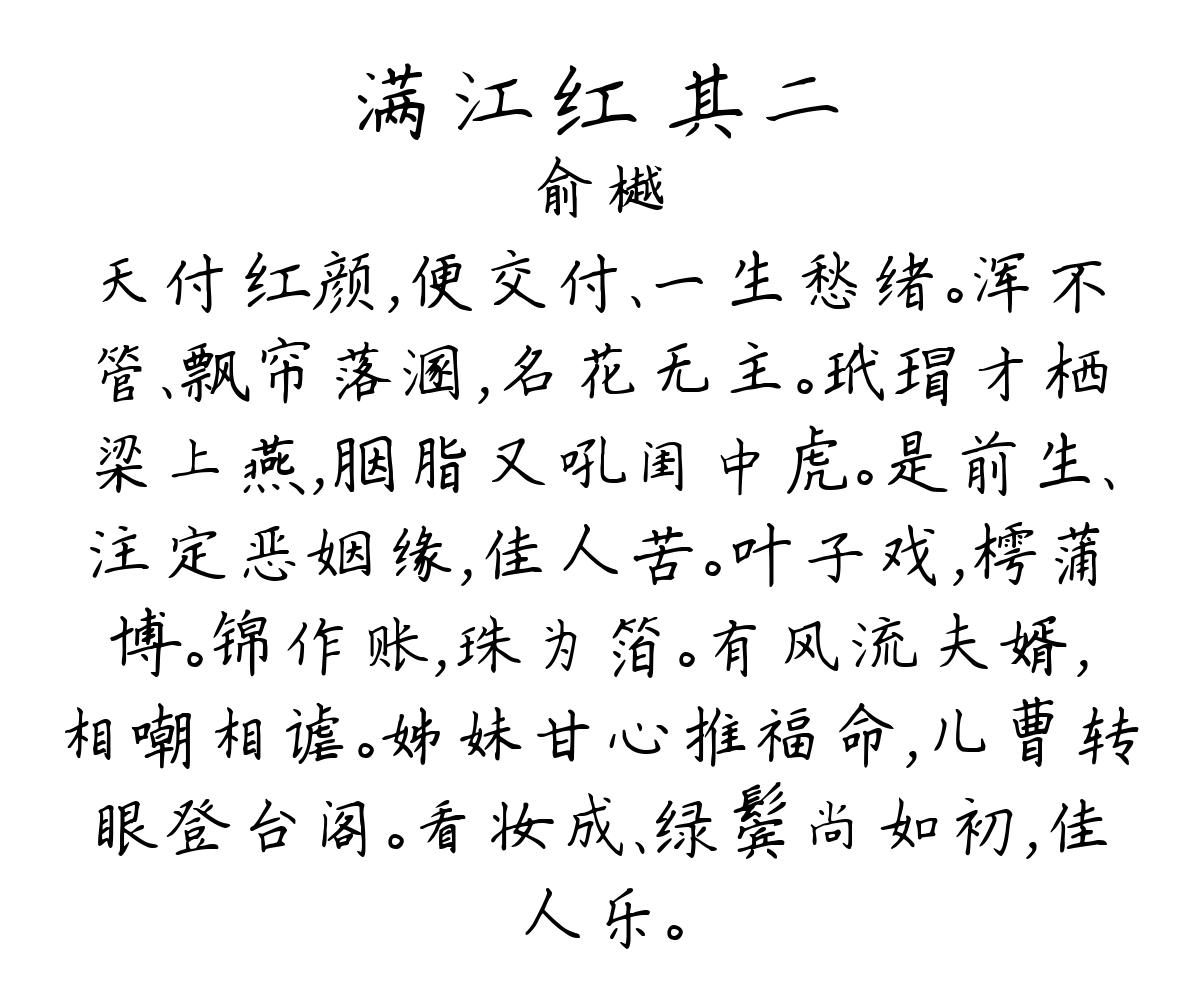 满江红 其二
俞樾
天付红颜,便交付、一生愁绪。浑不
管、飘帘落溷,名花无主。玳瑁才栖
梁上燕,胭脂又吼闺中虎。是前生、
注定恶姻缘,佳人苦。叶子戏,樗蒲
博。锦作账,珠为箔。有风流夫婿,
相嘲相谑。姊妹甘心推福命,儿曹转
眼登台阁。看妆成、绿鬓尚如初,佳
人乐。